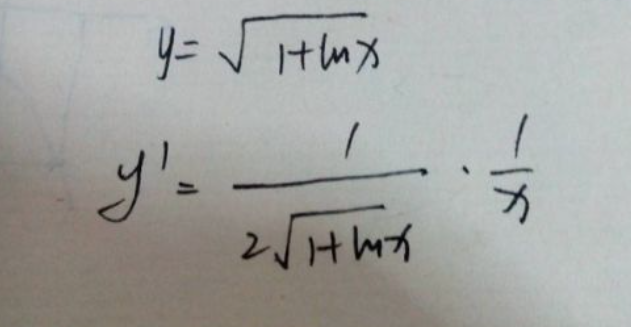 y = √(1+lnx)
y' = 1/(2√(1+lnx)) · 1/x